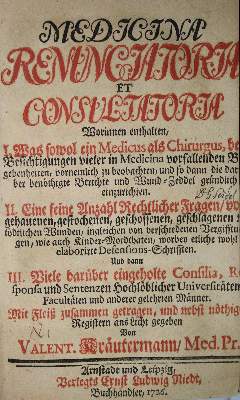 MEDICINA
RENUNCIATORIA
ET
CONSULTATORIA
Worinnen enthalten,
I. Was sowol ein Medicus als Chirurgus, be
Besichtigungen vieler in Medicina vorfallenden B
gebenheiten, vornemlich zu beobachten, und so dann die dar
ber benöthigte Berichte und Wund-Zeddel gründlich
einzurichten.
II. Eine feine Anzahl Rechtlicher Fragen, vo
gehauenen, gestochenen, geschossenen, geschlagenen
tödtlichen Wunden, ingleichen von verschiedenen Vergiftun
gen, wie auch Kinder-Mordthaten, worbey etliche wohl
elaborirte Defensions-Schriften.
Und dann
III. Viele darüber eingeholte Consilia, Re
sponsa und Sentenzen Hochlöblicher Universitäten
Facultäten und anderer gelehrten Männer.
Mit Fleiß zusammen getragen, und nebst nöthige
Registern ans Licht gegeben
Von
VALENT. Kräutermann/ Med. Pr.
Arnstadt und Leipzig,
Verlegts Ernst Ludwig Niedt,
Buchhändler, 1726.